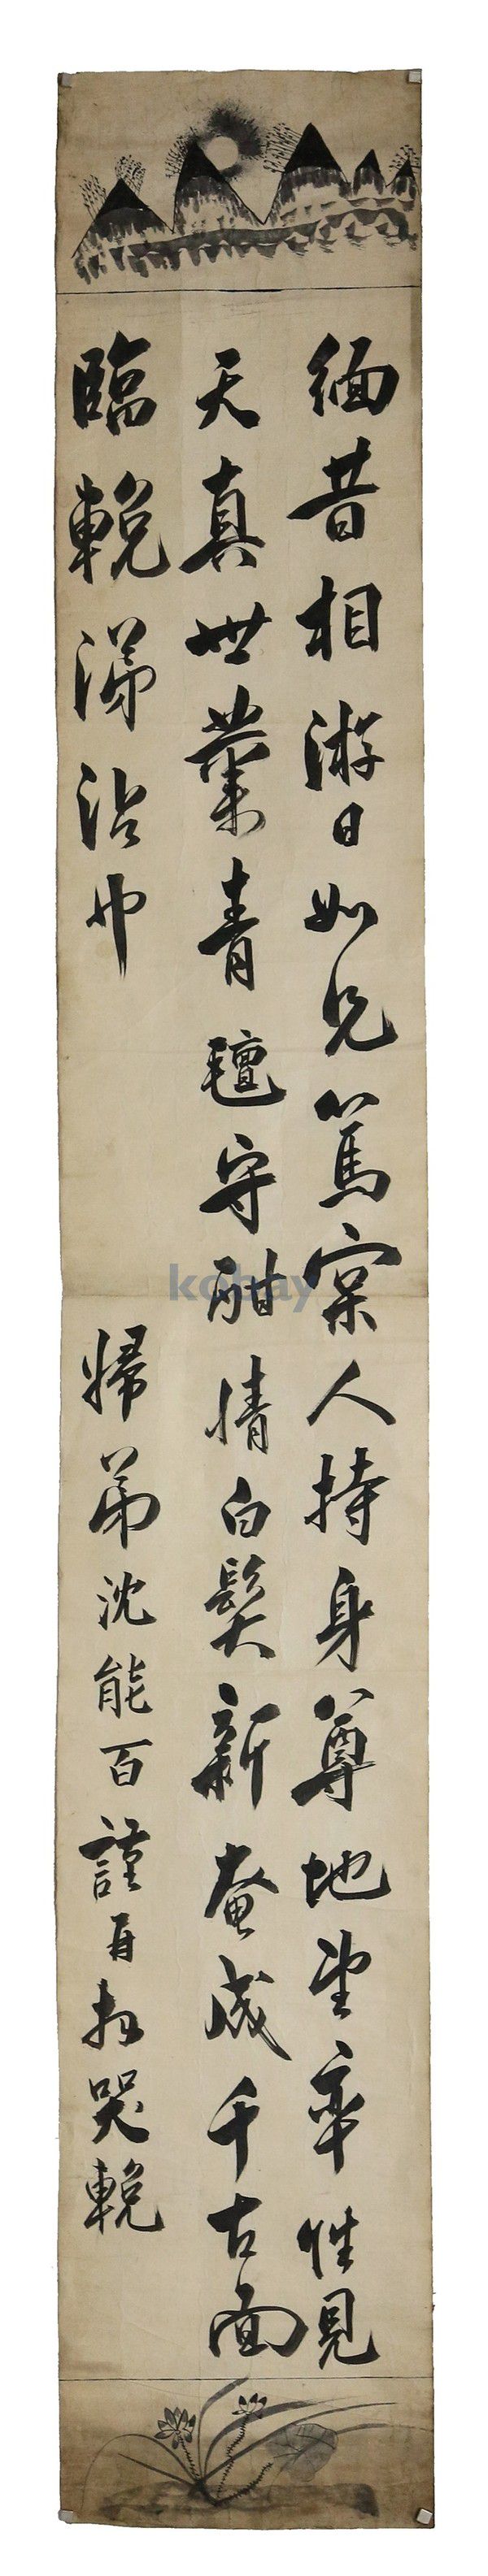 緬昔相游日如兄篤宗人持身尊地望率性見
天真世業青氈守酣情白髮新奄成千古面
臨輓涕沾巾
婦弟沈能百謹再拜哭輓
kobay